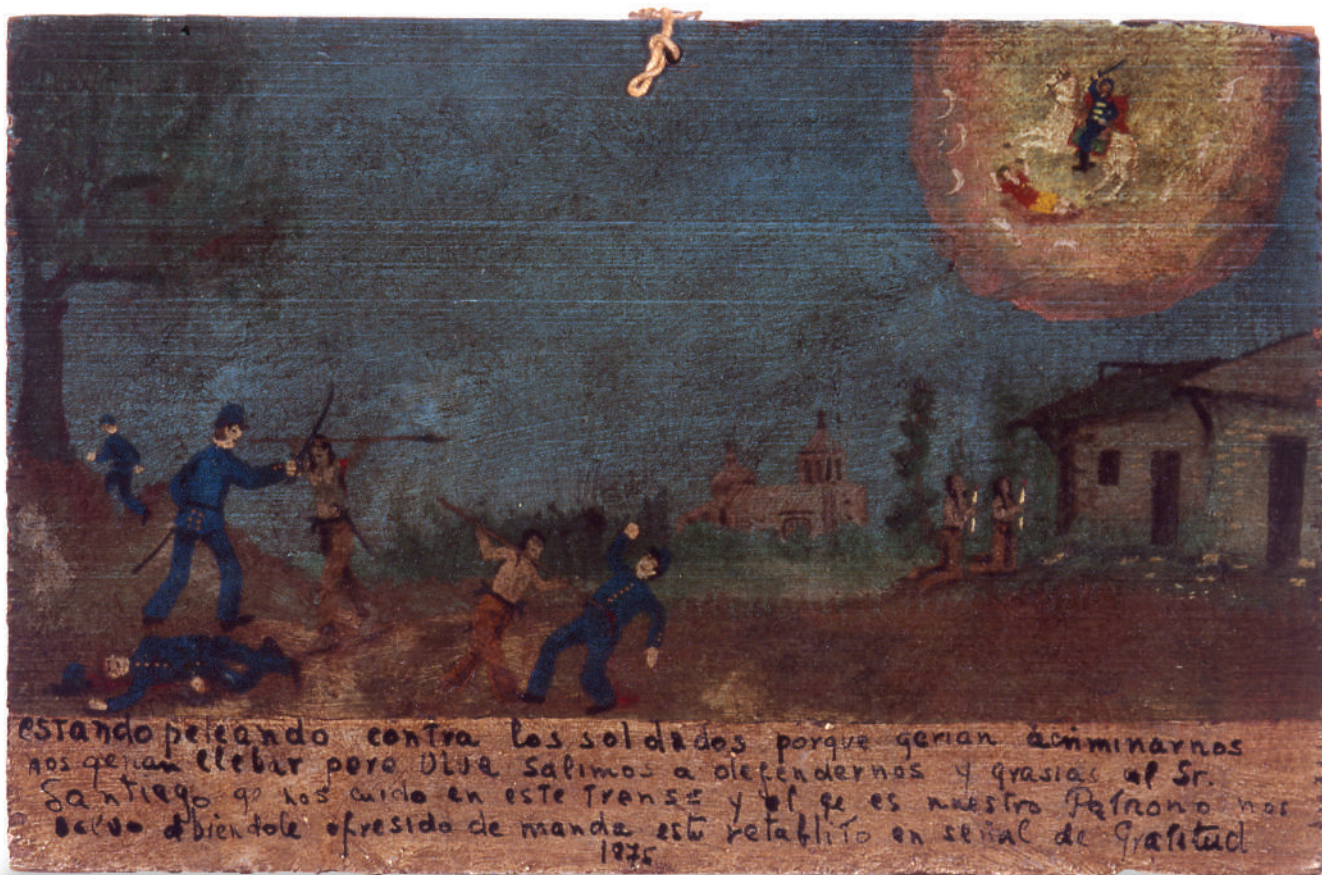 estando peleando contra los soldados porque gerian acriminarnos
nos gerian llebar pero salimos a defendernos y grasias al Sr.
Santiago qe nos cuido en este transe y el qe es nuestro Patrono nos
abiendole ofresido de manda este retablito en señal de Gratitud
1875